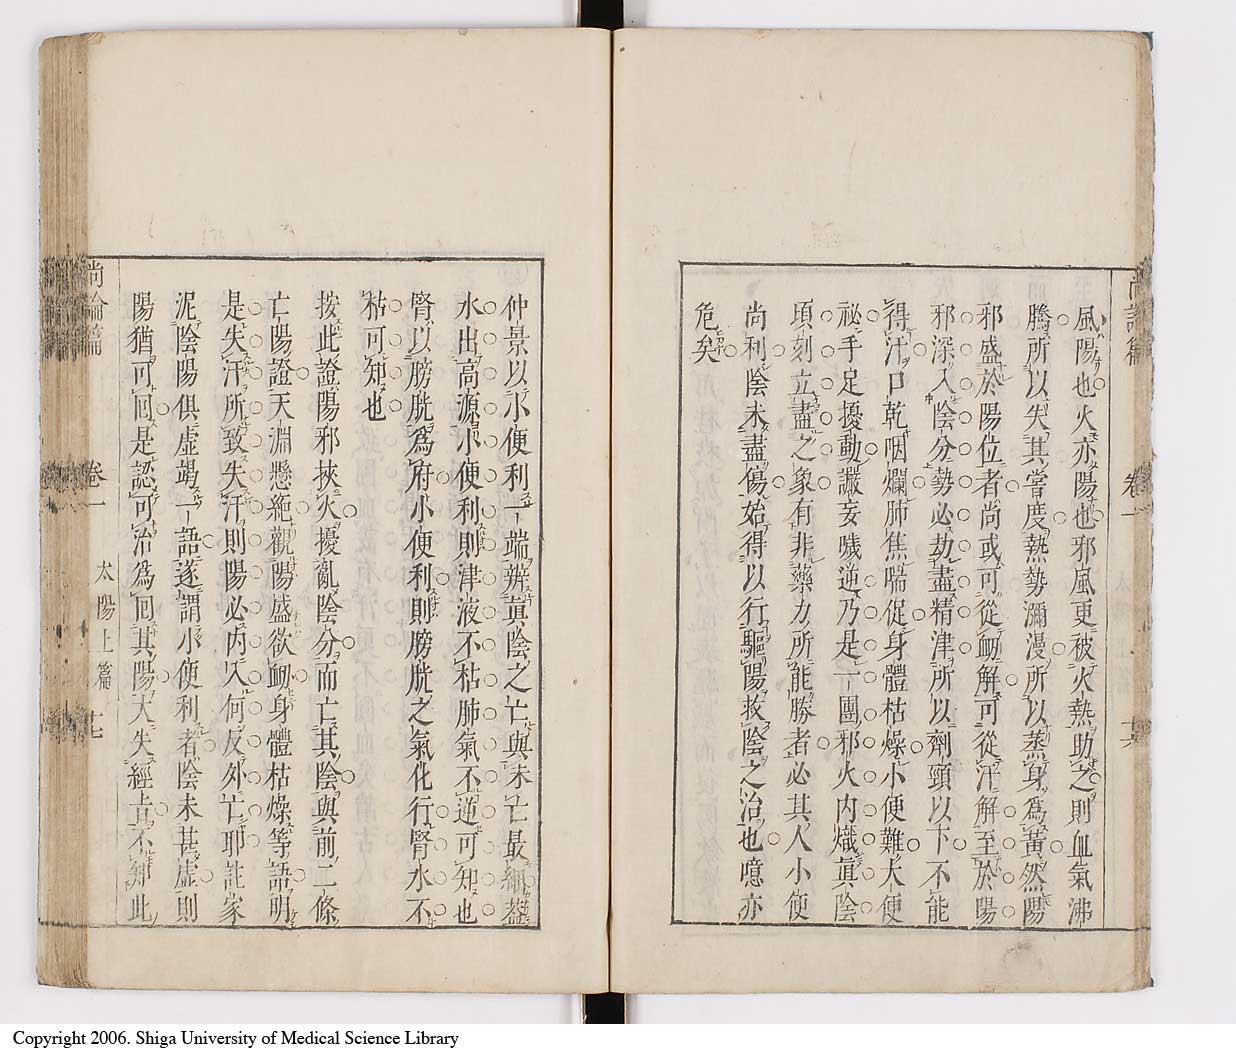 尚論篇
卷一
風陽也火亦陽也邪風更被火熱助之則血氣沸
騰所以失其常度熱勢瀰漫所以蒸身爲黃然陽
邪盛於陽位者尚或可從衂解可從汗解至於陽
邪深入陰分勢必劫盡精津所以劑頸以下不能
得汗口乾咽爛肺焦喘促身體枯燥小便難大便
祕手足擾動讝妄噦逆乃是一團邪火內熾眞陰
頃刻立盡之象有非藥力所能勝者必其人小便
尚利陰未盡傷始得以行驅陽救陰之治也噫亦
危矣
仲景以小便利一端辨眞陰之亡與未亡最細葢
水出高源小便利則津液不枯肺氣不逆可知也
腎以膀胱爲府小便利則膀胱之氣化行腎水不
枯可知也
按此證陽邪挾火擾亂陰分而亡其陰與前二條
亡陽證天淵懸絕觀陽盛欲衂身體枯燥等語明
是失汗所致失汗則陽必內入何反外亡耶註家
泥陰陽俱虛竭一語遂謂小便利者陰未甚虛則
陽猶可回是認可治爲回其陽大失經旨不知此
尚論篇
卷一
太陽上篇
十七
Copyright 2006. Shiga University of Medical Science Library